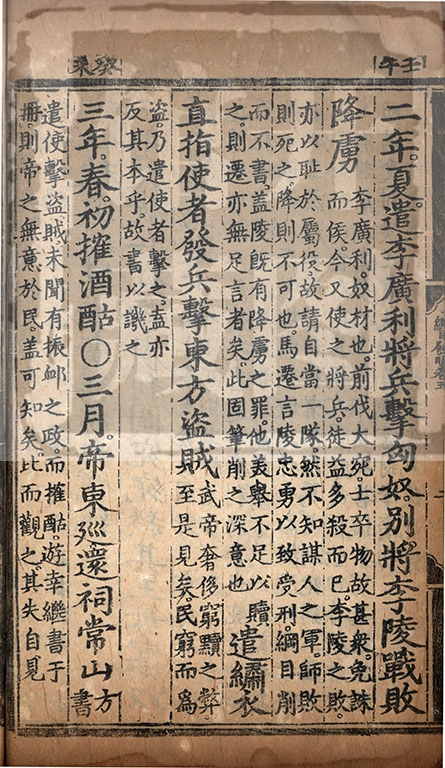 壬午
二年。夏。遣李廣利將兵擊匈奴別將李陵戰敗
降虜
李廣利。奴材也。前伐大宛。士卒物故甚衆。免誅
而侯。今又使之將兵。徒益多殺而已。李陵之敗。
亦以恥於屬役。故請自當一隊。然不知謀人之軍。師敗
則死之。降則不可也。馬遷言陵忠勇以致受刑。綱目削
而不書。盖陵旣有降虜之罪。他美舉不足以贖
之則遷亦無足言者矣。此固筆削之深意也
遣繡衣
直指使者發兵擊東方盜賊
武帝奢侈窮黷之弊。
至是見矣。民窮而爲
盗。乃遣使者擊之。盍亦
反其本乎。故書以譏之
癸未
三年。春。初搉酒酤○三月。帝東廵還祠常山
方
書
遣使擊盗賊。未聞有振卹之政。而搉酤。遊幸繼書于
冊。則帝之無意於民。盖可知矣。比而觀之。其失自見